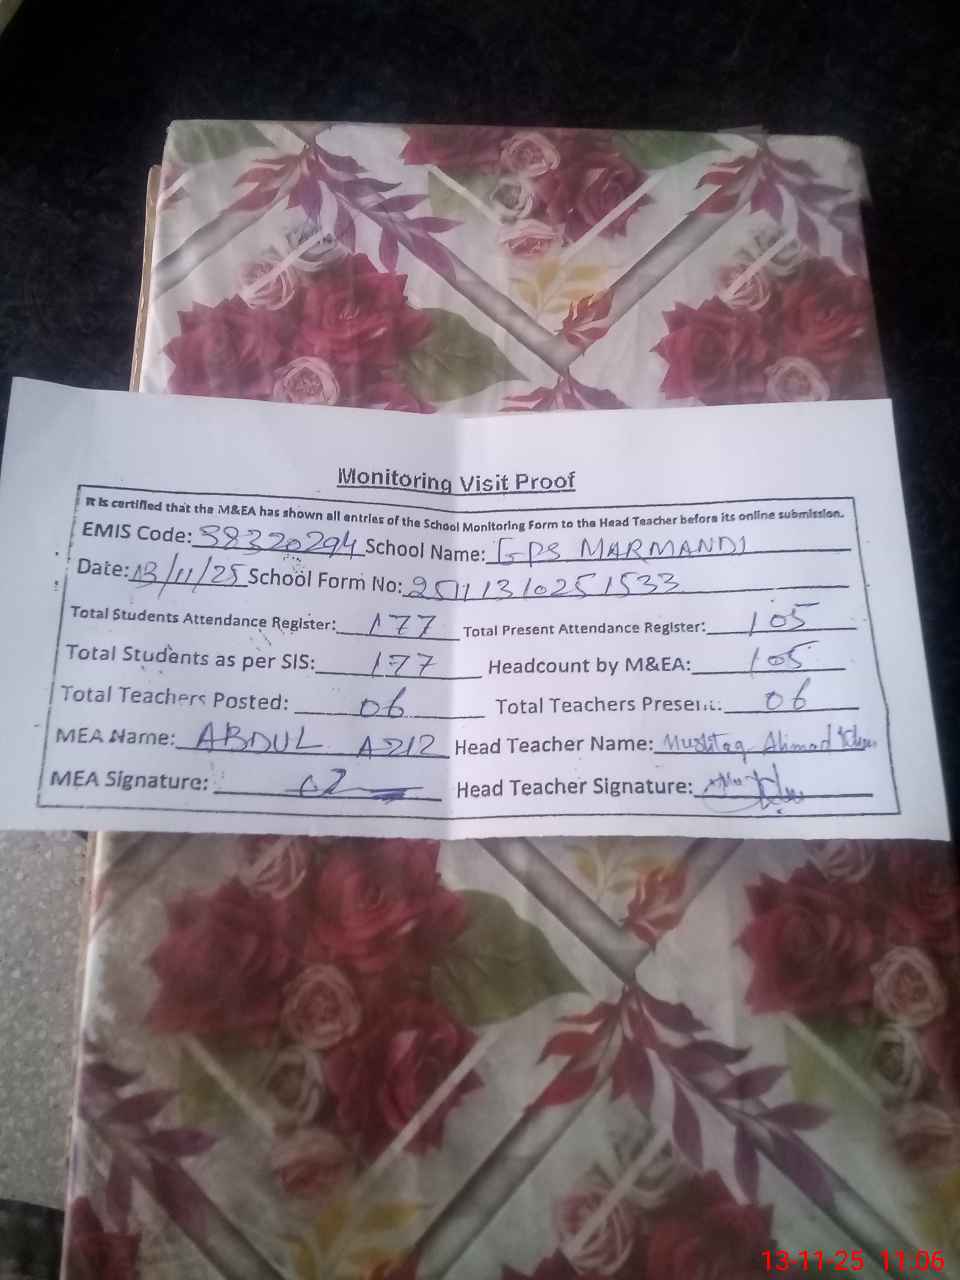 Monitoring Visit Proof
It is certified that the M&EA has shown all entries of the School Monitoring Form to the Head Teacher before its online submission.
EMIS Code: 38320294 School Name: GPS MARMANDI
Date: 13/11/25 School Form No: 25111310251533
Total Students Attendance Register: 177 Total Present Attendance Register: 105
Total Students as per SIS: 177 Headcount by M&EA: 105
Total Teachers Posted: 06 Total Teachers Present: 06
MEA Name: ABDUL AZIZ Head Teacher Name: Mushtaq Ahmad
MEA Signature: Head Teacher Signature:
13-11-25 11:06